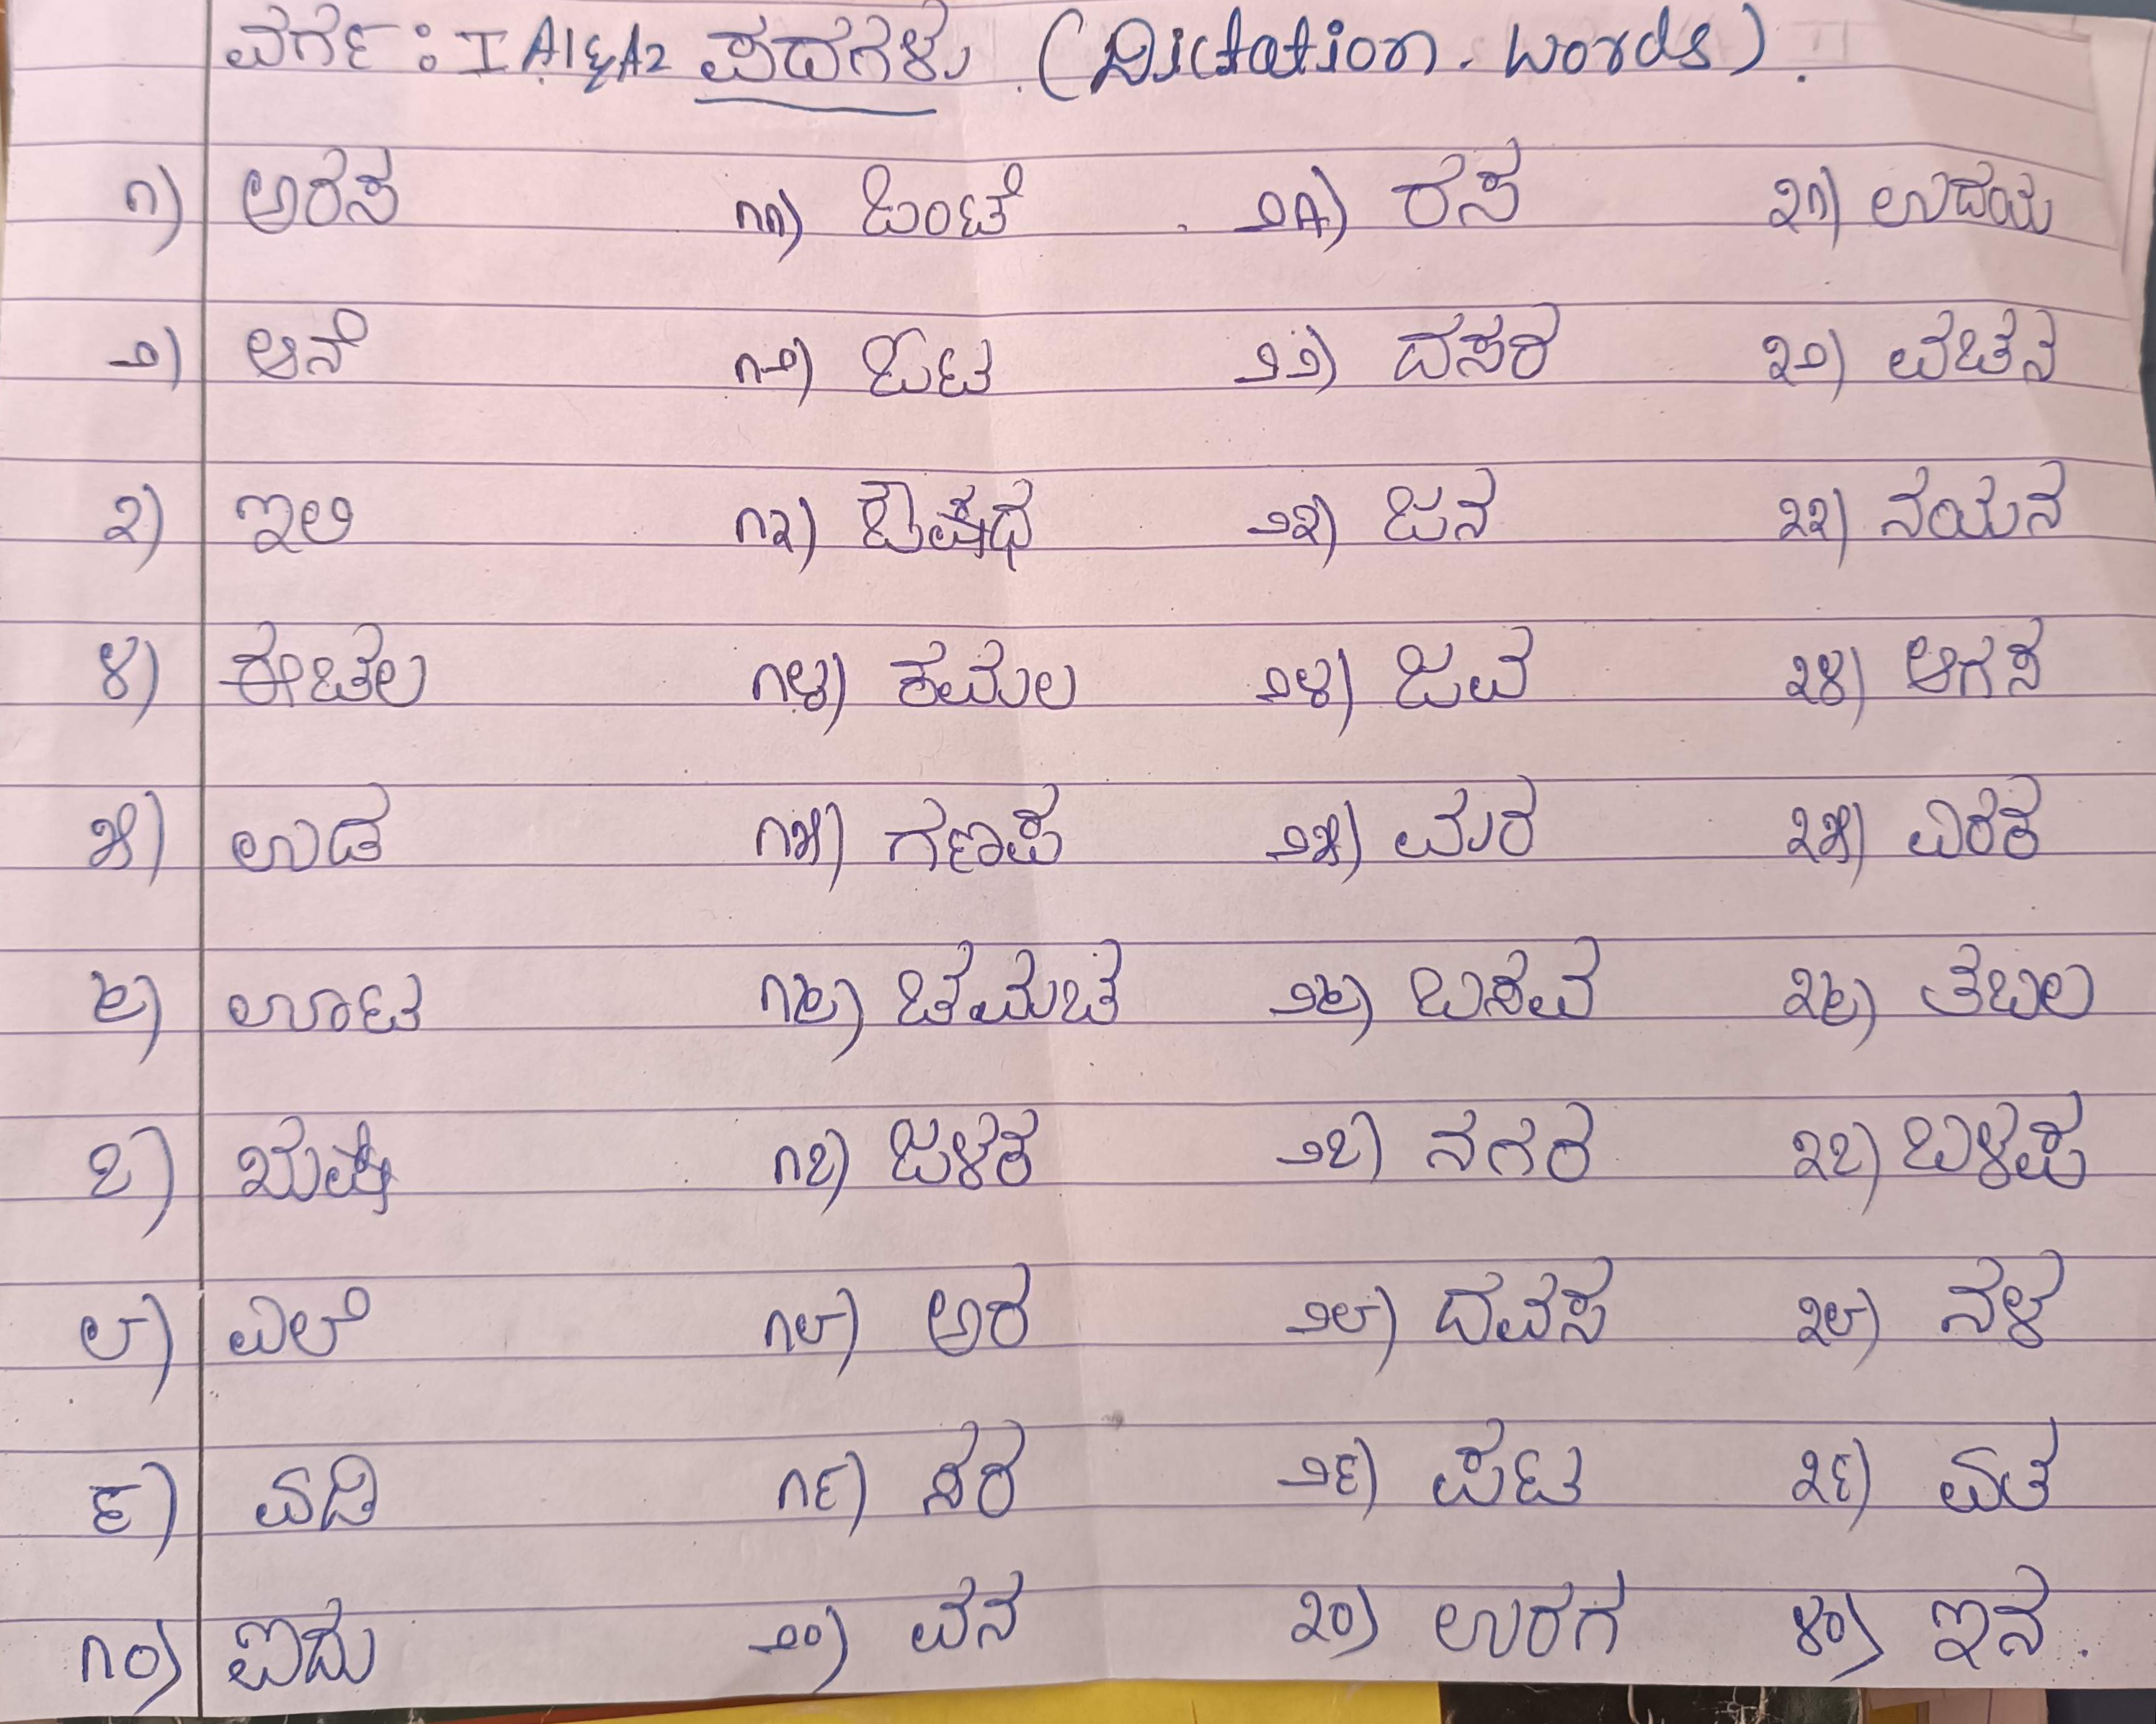 ವರ್ಗ : I A1 & A2 ಪದಗಳು (Dictation words).
೧) ಅರಸ ೧೧) ಒಂಟೆ ೨೧) ರಸ ೩೧) ಉದಯ
೨) ಆನೆ ೧೨) ಓಟ ೨೨) ದಸರ ೩೨) ವಚನ
೩) ಇಲಿ ೧೩) ಔಷಧ ೨೩) ಜನ ೩೩) ನಯನ
೪) ಈಚಲ ೧೪) ಕಮಲ ೨೪) ಜವ ೩೪) ಆಗಸ
೫) ಉಡ ೧೫) ಗಣಪ ೨೫) ಮರ ೩೫) ಎರಕ
೬) ಊಟ ೧೬) ಚಮಚ ೨೬) ಬಸವ ೩೬) ತಬಲ
೭) ಋಷಿ ೧೭) ಜಳಕ ೨೭) ನಗರ ೩೭) ಬಳಪ
೮) ಎಲೆ ೧೮) ಅರ ೨೮) ದವಸ ೩೮) ನಳ
೯) ಏಡಿ ೧೯) ಸರ ೨೯) ಪಟ ೩೯) ಏತ
೧೦) ಐದು ೨೦) ವನ ೩೦) ಉರಗ ೪೦) ಇನ.